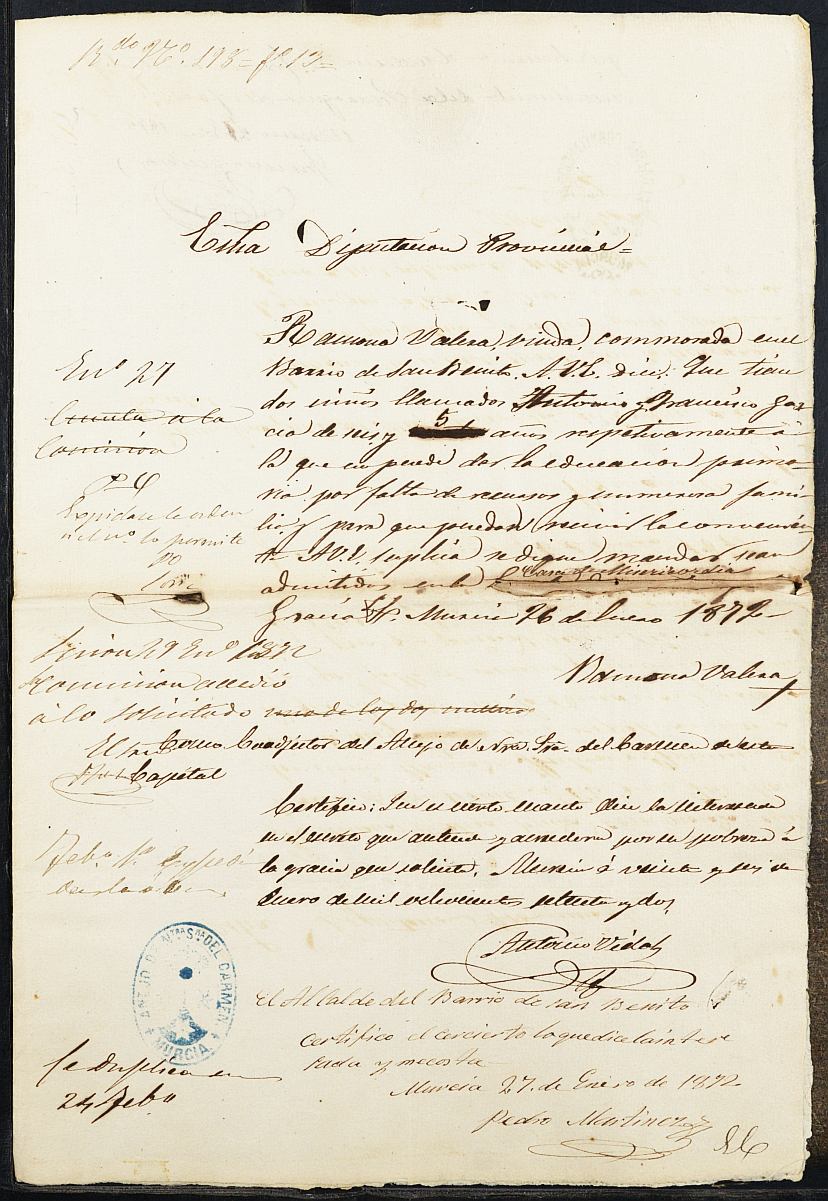 R.do Nº. 198 = fº. 13 =
Exma Diputacion Provincial =
Ramona Valera, viuda, commorada en el
Barrio de San Benito, A.V.E. dice: Que tiene
dos niños llamados Antonio y Francisco Gar
cia de seis y 5 años respetivamente á
la que no puede dar la educacion prima
ria por falta de recursos y numerosa fami
lia y para que puedan recivir la conveniente
A.V.E. suplica se digne mandar sean
admitidos en la Casa de Misericordia
Gracia &. Murcia 26 de Enero 1872 =
Ramona Valera
Enº 27
Cuenta á la
Comision
P.O.
Expidase la orden
si el nº lo permite
Sesion 29 Enº 1872
La Comision accedió
á lo solicitado
Como Coadjutor del Anejo de Nra. Sra. del Carmen de esta
Capital
Certifico: Que es cierto cuanto dice la interesada
en el escrito que antecede y acreedora por su pobreza á
la gracia que solicita. Murcia á veinte y seis de
Enero de mil ochocientos setenta y dos.
Antonio Vidal
Feb.º 1º Expedi
da la orden
ANEJO DE NTRA SRA DEL CARMEN
MURCIA
El Alcalde del Barrio de San Benito
Certifico el cercierto lo que dice la intere
sada y me costa
Murcia 27 de Enero de 1872
Pedro Martinez
Se duplica en
24 Feb.º